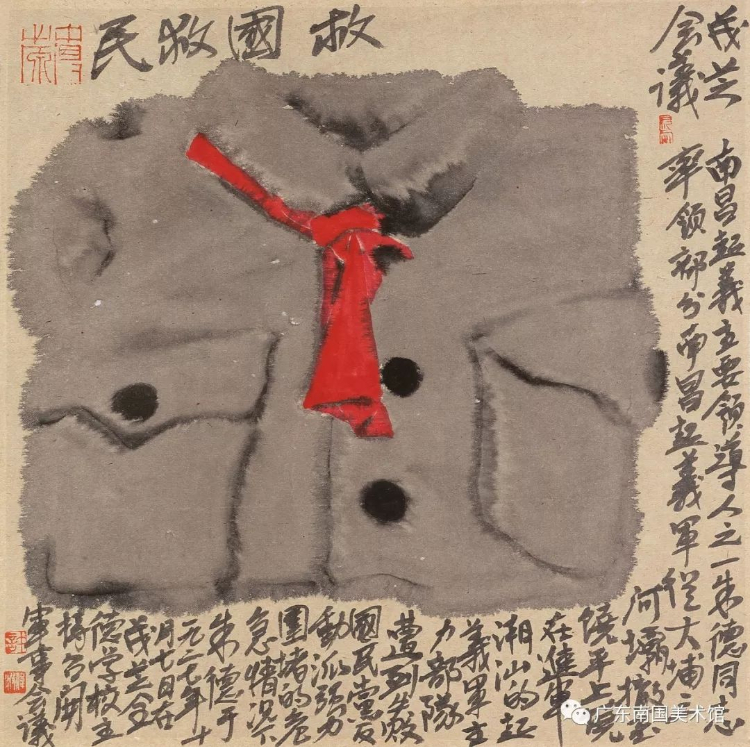 救國救民
茂芝
会議
南昌起義主要领導人之一朱德同志
率领部分南昌起義軍從大埔
河壩撤至
饒平上饒
在進軍
潮汕的起
義軍主
力部隊
遭到失敗
國民黨反
動派强力
圍堵的危
急情况下
朱德于
一九二七年十
月七日在
茂芝全
德学校主
持召開
軍事会議
广东南国美术馆